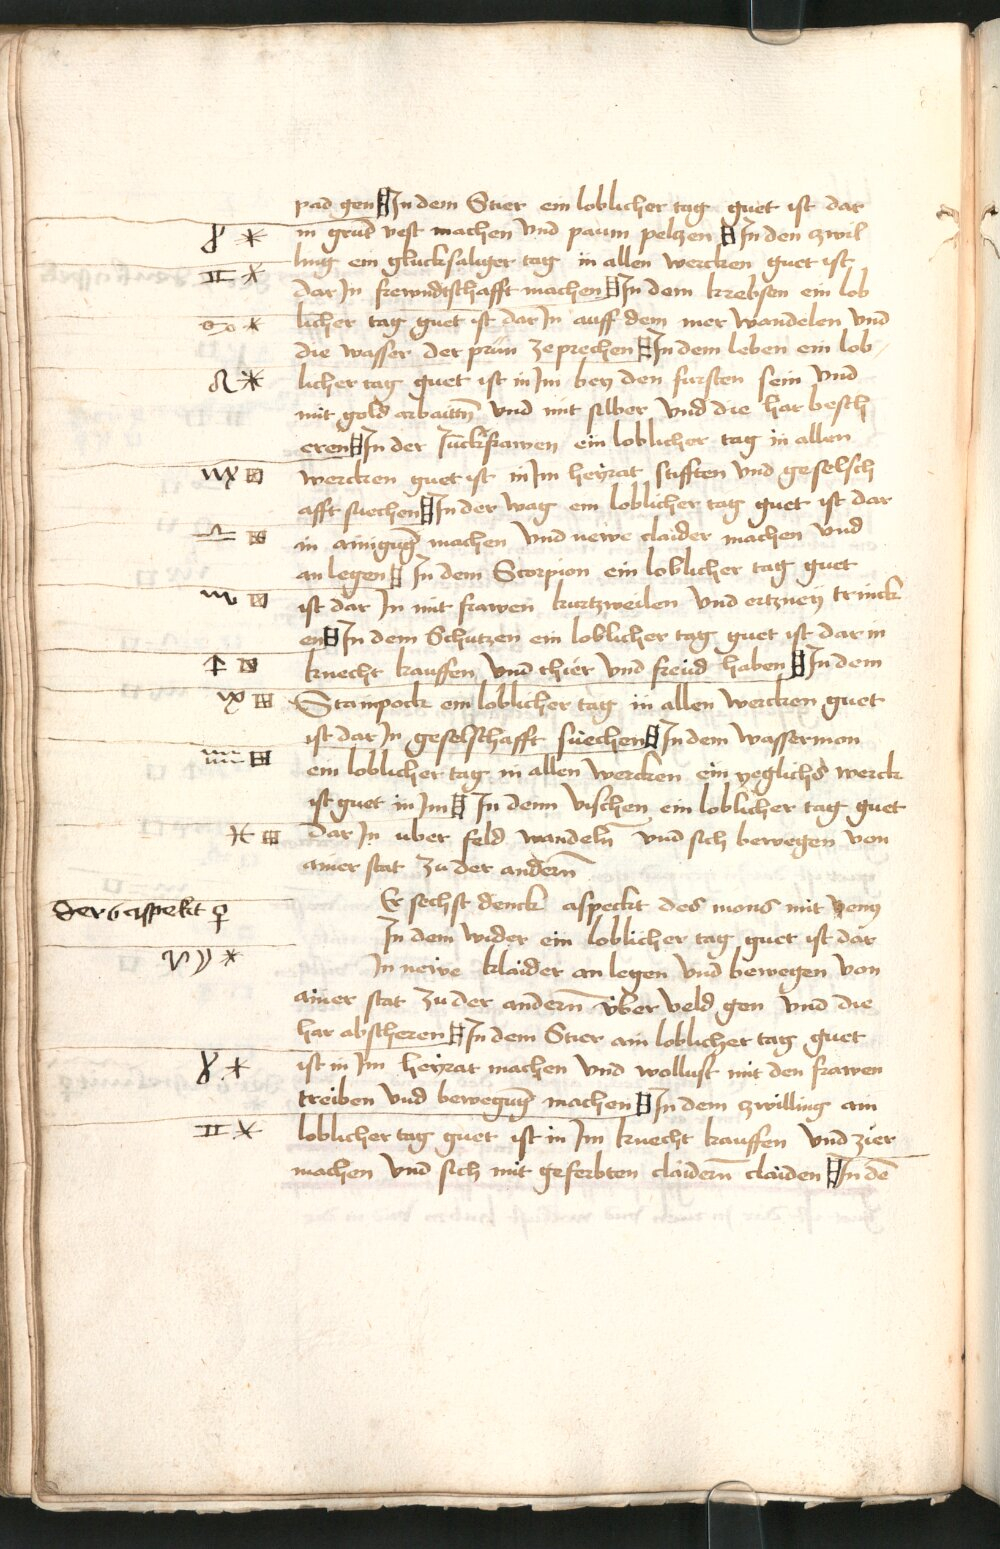 pad gen In dem Stier ein loblicher tag guet ist dar
♉ ⚹
in grūd vest machen vnd paum pelczen In den zwil
ling ein glucksaliger tag in allen wercken guet ist
♊ ⚹
dar In frewndtschafft machen In dem krebsen ein lob
♋ ⚹
licher tag guet ist dar In auff dem mer wandelen vnd
die wasser der prün zeprechen In dem leben ein lob
♌ ⚹
licher tag guet ist in Im bey den fursten sein vnd
mit gold arbaittn̄ vnd mit silber vnd die har besch
eren In der Juckfrawen ein loblicher tag in allen
♍ □
wercken guet ist in Im heyrat stifften vnd geselsch
afft suechen In der wag ein loblicher tag guet ist dar
♎ □
in ainiguḡ machen vnd newe claider machen vnd
an legen In dem Scorpion ein loblicher tag guet
♏ □
ist dar In mit frawen kurtzweilen vnd ertzney trinck
en In dem Schutzen ein loblicher tag guet ist dar in
♐ □
knecht kauffen vnd thier vnd freud haben In dem
♑ □
Stainpock ein loblicher tag in allen wercken guet
ist dar In geselschafft suechen In dem wassermon
♒ □
ein loblicher tag in allen wercken ein yeglichs werck
ist guet in Im In dem vischen ein loblicher tag guet
♓ □
dar In uber feld wandeln̄ vnd sich bewegen von
ainer stat zu der andern̄
der 6 aspekt ♀
Er sechst denck aspeckt des mons mit veny
In dem wider ein loblicher tag guet ist dar
♈ ☽ ⚹
In newe klaider an legen vnd bewegen von
ainer stat zu der andern̄ über veld gen vnd die
har abscheren In dem Stier ain loblicher tag guet
♉ ⚹
ist in Im heyrat machen vnd wollust mit den frawen
treiben vnd beweguḡ machen In dem zwilling ain
♊ ⚹
loblicher tag guet ist in Im knecht kauffen vnd zier
machen vnd sich mit geferbten claidern̄ claiden In dē